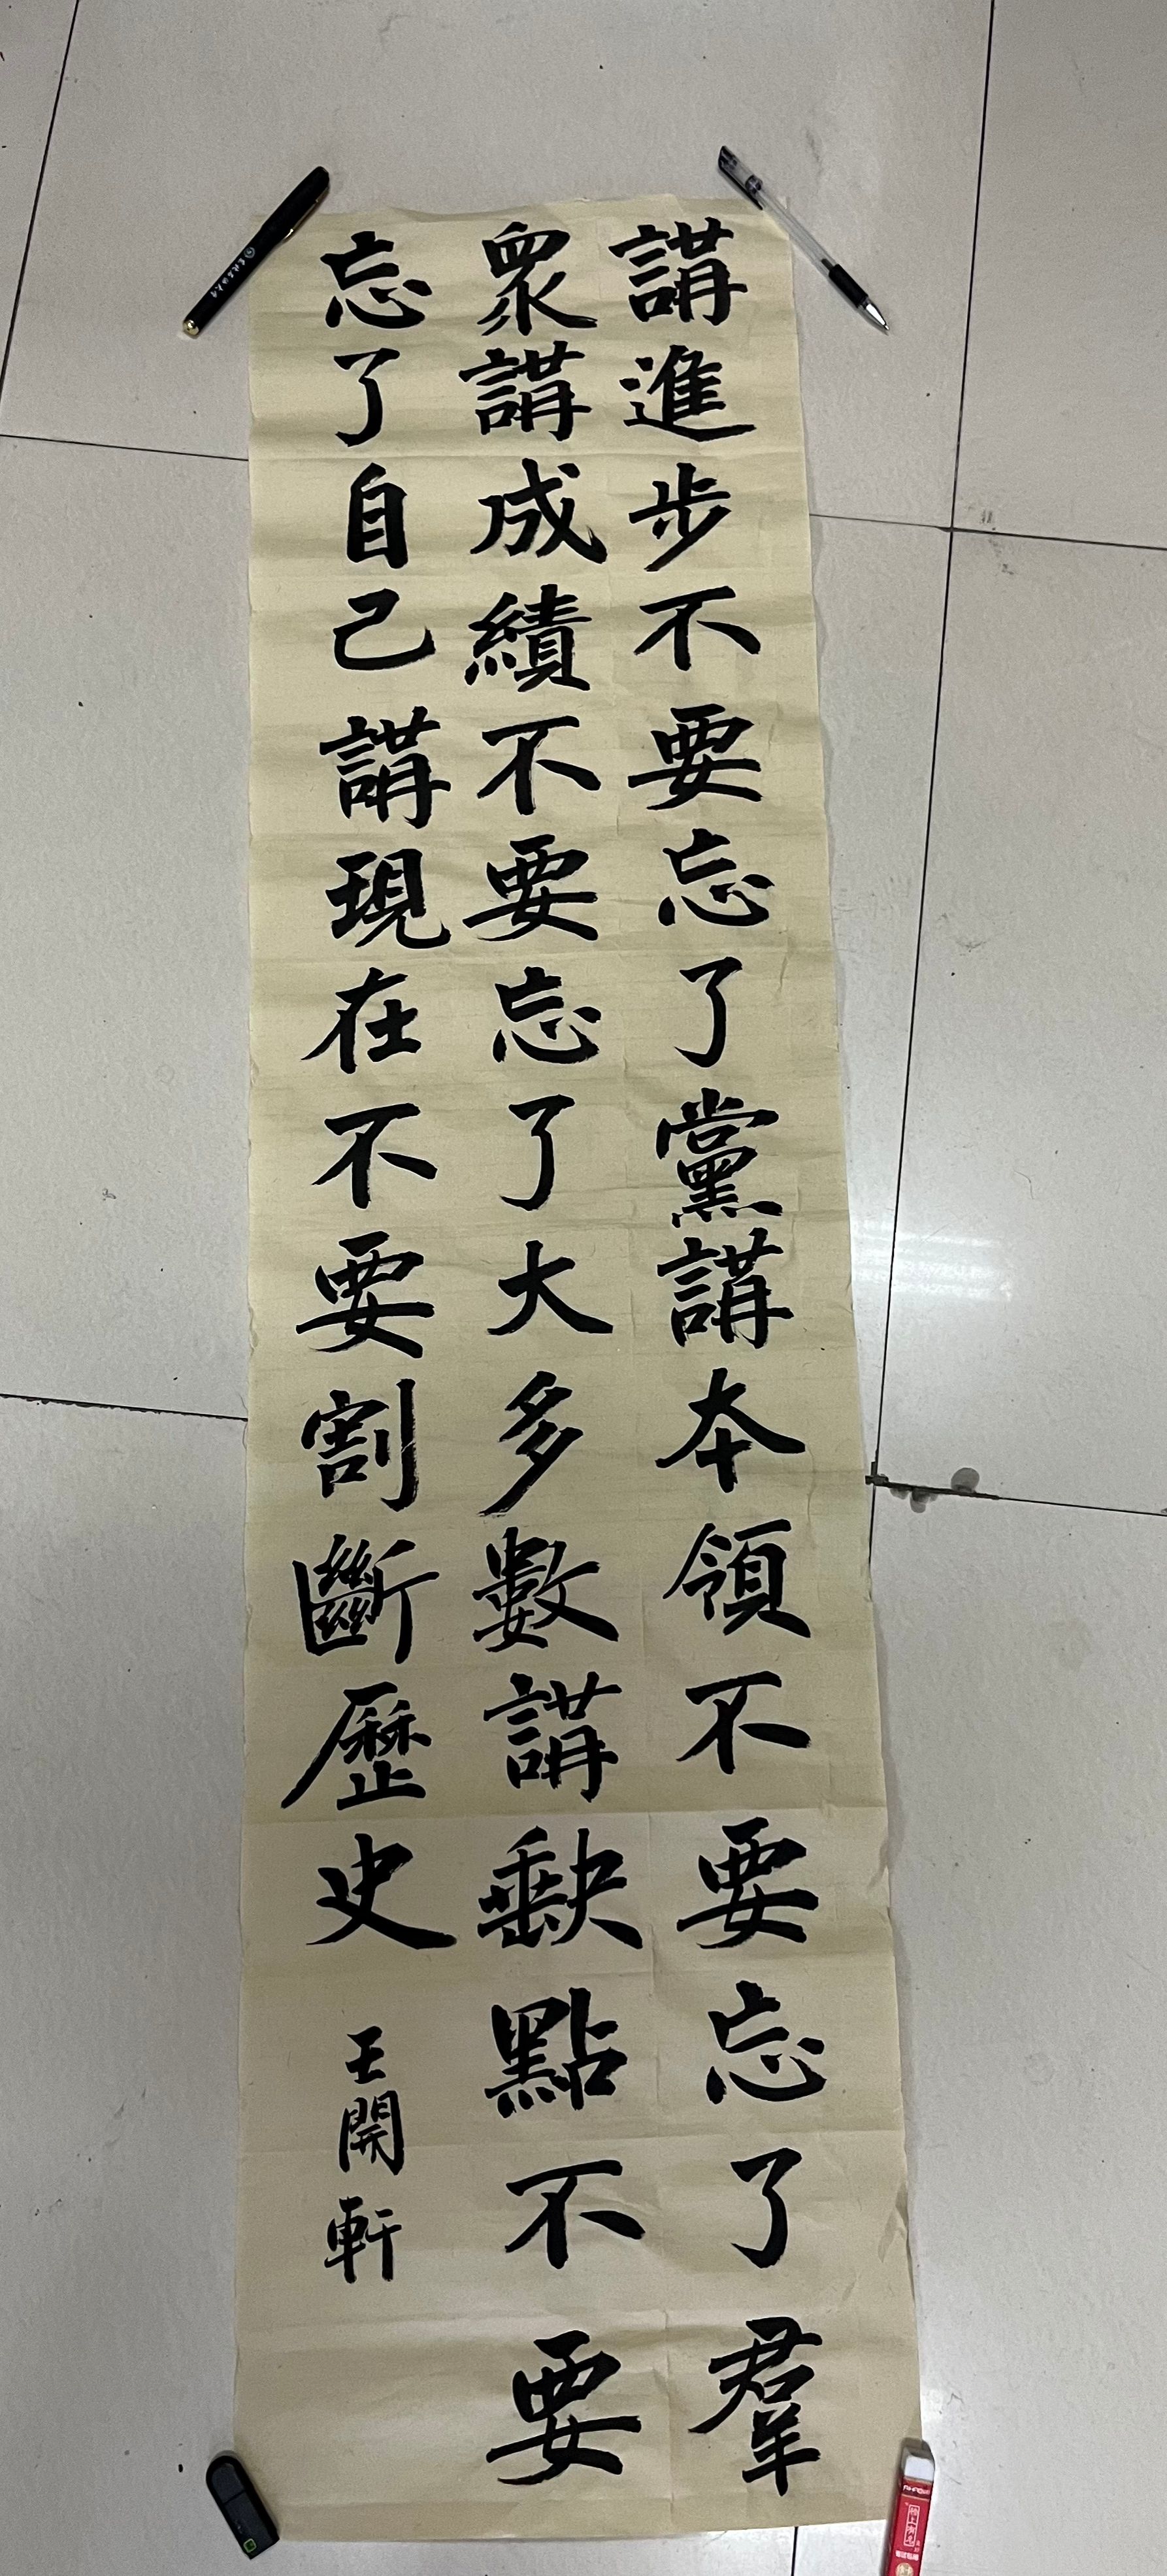 講進步不要忘了黨講本領不要忘了羣
衆講成績不要忘了大多數講缺點不要
忘了自己講現在不要割斷歷史
王開軒